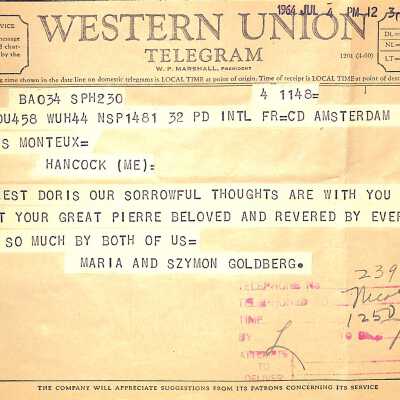 1964 JUL 4 PM 12
WESTERN UNION
TELEGRAM
W. P. MARSHALL, PRESIDENT
1201 (4-60)
DL=
NL=
LT=
ing time shown in the date line on domestic telegrams is LOCAL TIME at point of origin. Time of receipt is LOCAL TIME at point of destination
BA034 SPH230 4 1148=
OU458 WUH44 NSP1481 32 PD INTL FR=CD AMSTERDAM
S MONTEUX=
HANCOCK (ME)=
EST DORIS OUR SORROWFUL THOUGHTS ARE WITH YOU
T YOUR GREAT PIERRE BELOVED AND REVERED BY EVER
SO MUCH BY BOTH OF US=
MARIA AND SZYMON GOLDBERG.
239
TELEPHONE NO
TELEPHONED TO
125P
BY
ATTEMPTS
TO
DELIVER
THE COMPANY WILL APPRECIATE SUGGESTIONS FROM ITS PATRONS CONCERNING ITS SERVICE